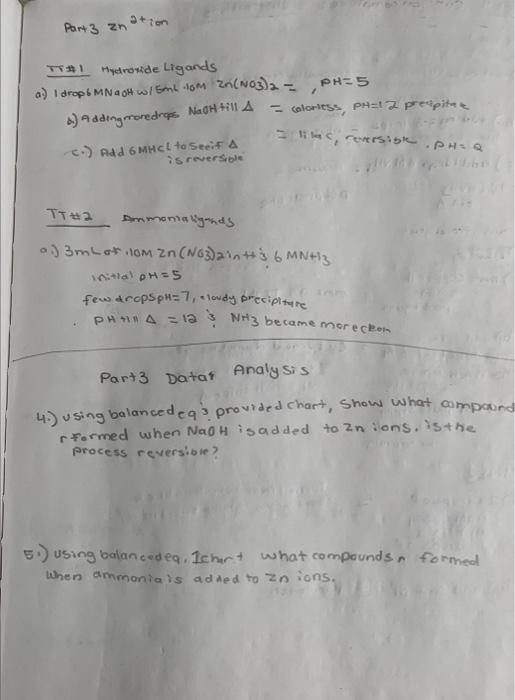 Part 3 Zn2+ ion
TT#1 Hydroxide Ligands
a.) 1 drop 6MNaOH w/ 5mL .10M Zn(NO3)2 = , pH=5
b) Adding more drops NaOH till Δ = colorless, pH=12 precipitate
= lilac, reversible. pH=2
c.) Add 6MHCl to see if Δ
is reversible
TT#2 Ammonia ligands
a.) 3mL of .10M Zn(NO3)2 in tt & 6 MNH3
initial pH=5
few drops pH=7, cloudy precipitate
pH till Δ = 12 & NH3 became more
Part 3 Data Analysis
4.) Using balanced eq & provided chart, Show what compound
formed when NaOH is added to Zn ions. is the
process reversible?
5.) Using balanced eq, chart what compounds formed
when ammonia is added to Zn ions.